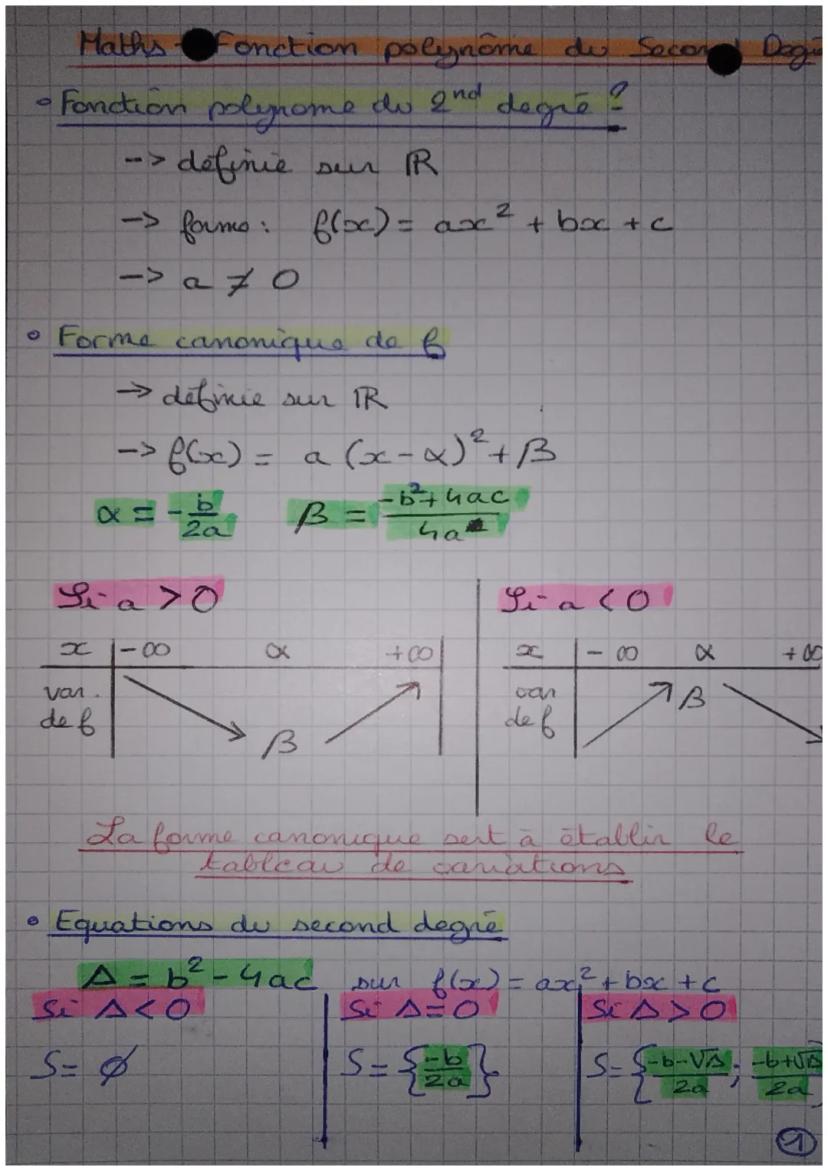 Maths - Fonction polynôme du Second Degré
• Fonction polynome du 2nd degré ?
--> définie sur ℝ
--> forme : f(x) = ax² + bx + c
--> a ≠ 0
• Forme canonique de f
--> définie sur ℝ
--> f(x) = a (x - α)² + β
α = -b/2a β = (-b² + 4ac)/4a
Si a > 0 Si a < 0
x -∞ α +∞ x -∞ α +∞
var. de f ↘ β ↗ var de f ↗ β ↘
La forme canonique sert à établir le
tableau de variations
• Equations du second degré
Δ = b² - 4ac sur f(x) = ax² + bx + c
Si Δ < 0 Si Δ = 0 Si Δ > 0
S = ∅ S = {-b/2a} S = {(-b-√Δ)/2a ; (-b+√Δ)/2a
1